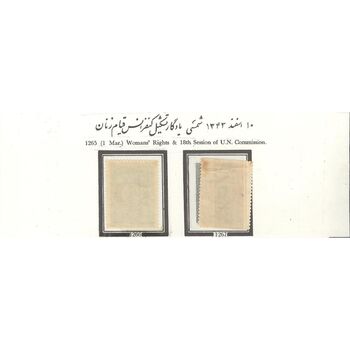 ۱۰ اسفند ۱۳۴۳ شمسی یادگار تشکیل کنفرانس قیام زنان
1265 (1 Mar.) Womans' Rights & 18th Session of U.N. Commission.